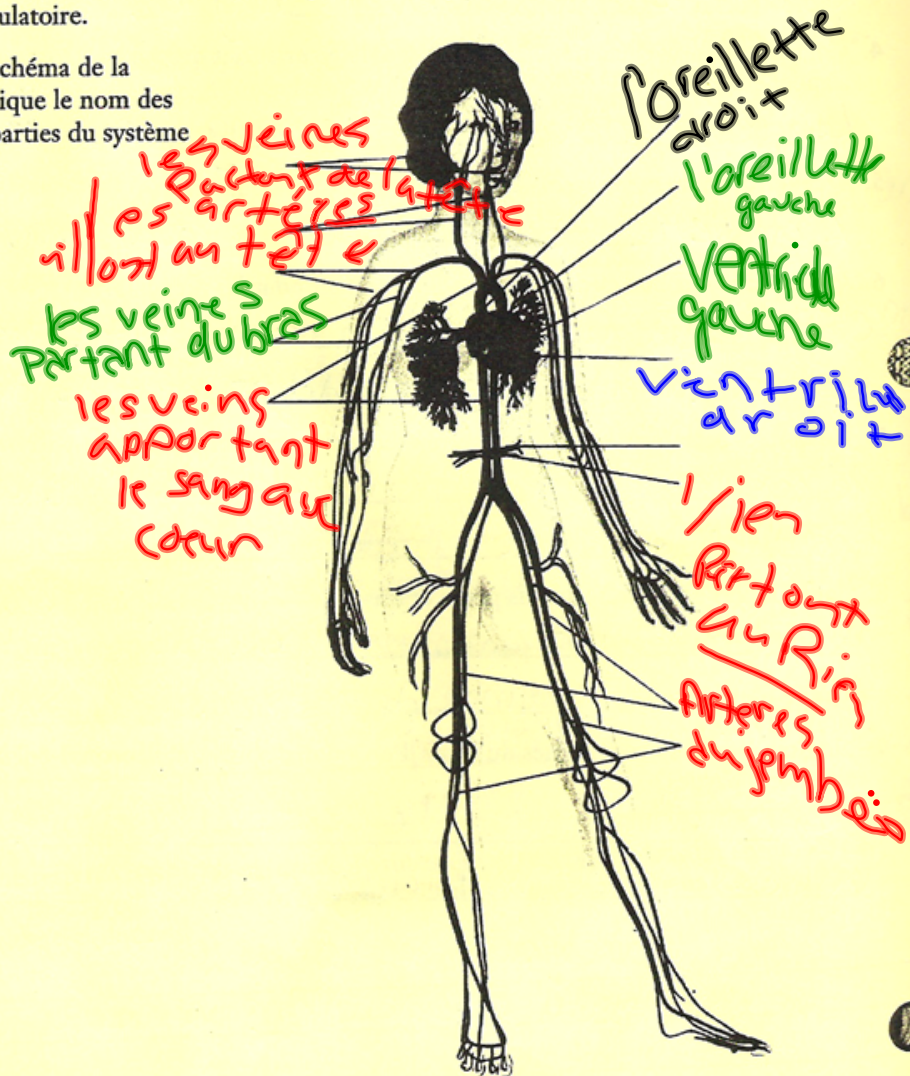 ulatoire.
chéma de la
ique le nom des
parties du système
les veines
partant de la tête
les artères
allant au tête
les veines
Partant du bras
les veins
apportant
le sang aux
coeur
l'oreillette
droit
l'oreillette
gauche
ventricle
gauche
droit
Partant
au
Artères
du jembes